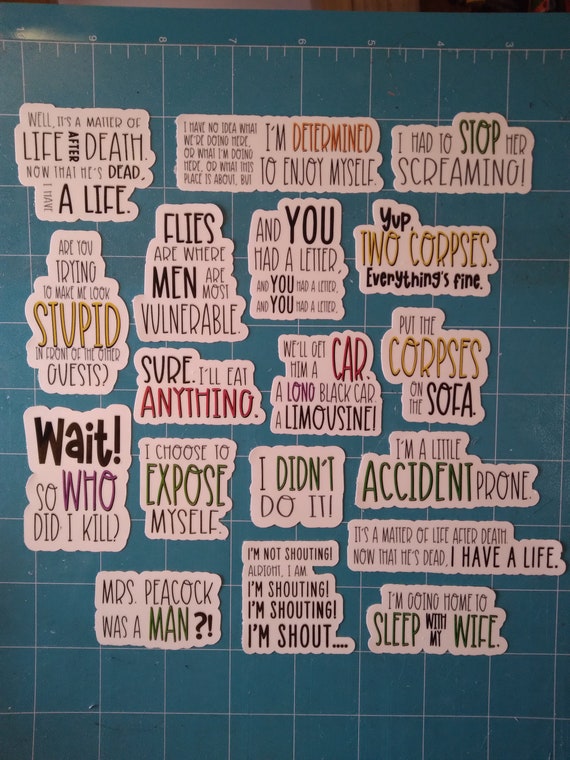 WELL, IT'S A MATTER OF
LIFE AFTER DEATH.
NOW THAT HE'S DEAD,
I HAVE A LIFE.
I HAVE NO IDEA WHAT
WE'RE DOING HERE,
OR WHAT I'M DOING
HERE, OR WHAT THIS
PLACE IS ABOUT, BUT
I'M DETERMINED
TO ENJOY MYSELF.
I HAD TO STOP HER
SCREAMING!
ARE YOU
TRYING
TO MAKE ME LOOK
STUPID
IN FRONT OF THE OTHER
GUESTS?
FLIES
ARE WHERE
MEN ARE
MOST
VULNERABLE.
AND YOU
HAD A LETTER,
AND YOU HAD A LETTER,
AND YOU HAD A LETTER.
Yup,
TWO CORPSES.
Everything's fine.
SURE. I'LL EAT
ANYTHING.
WE'LL GET
HIM A CAR.
A LONG BLACK CAR.
A LIMOUSINE!
PUT THE
CORPSES
ON THE SOFA.
Wait!
SO WHO
DID I KILL?
I CHOOSE TO
EXPOSE
MYSELF.
I DIDN'T
DO IT!
I'M A LITTLE
ACCIDENT PRONE.
IT'S A MATTER OF LIFE AFTER DEATH.
NOW THAT HE'S DEAD, I HAVE A LIFE.
MRS. PEACOCK
WAS A MAN?!
I'M NOT SHOUTING!
ALRIGHT, I AM.
I'M SHOUTING!
I'M SHOUTING!
I'M SHOUT....
I'M GOING HOME TO
SLEEP WITH MY WIFE.
8
7
6
5
4
3